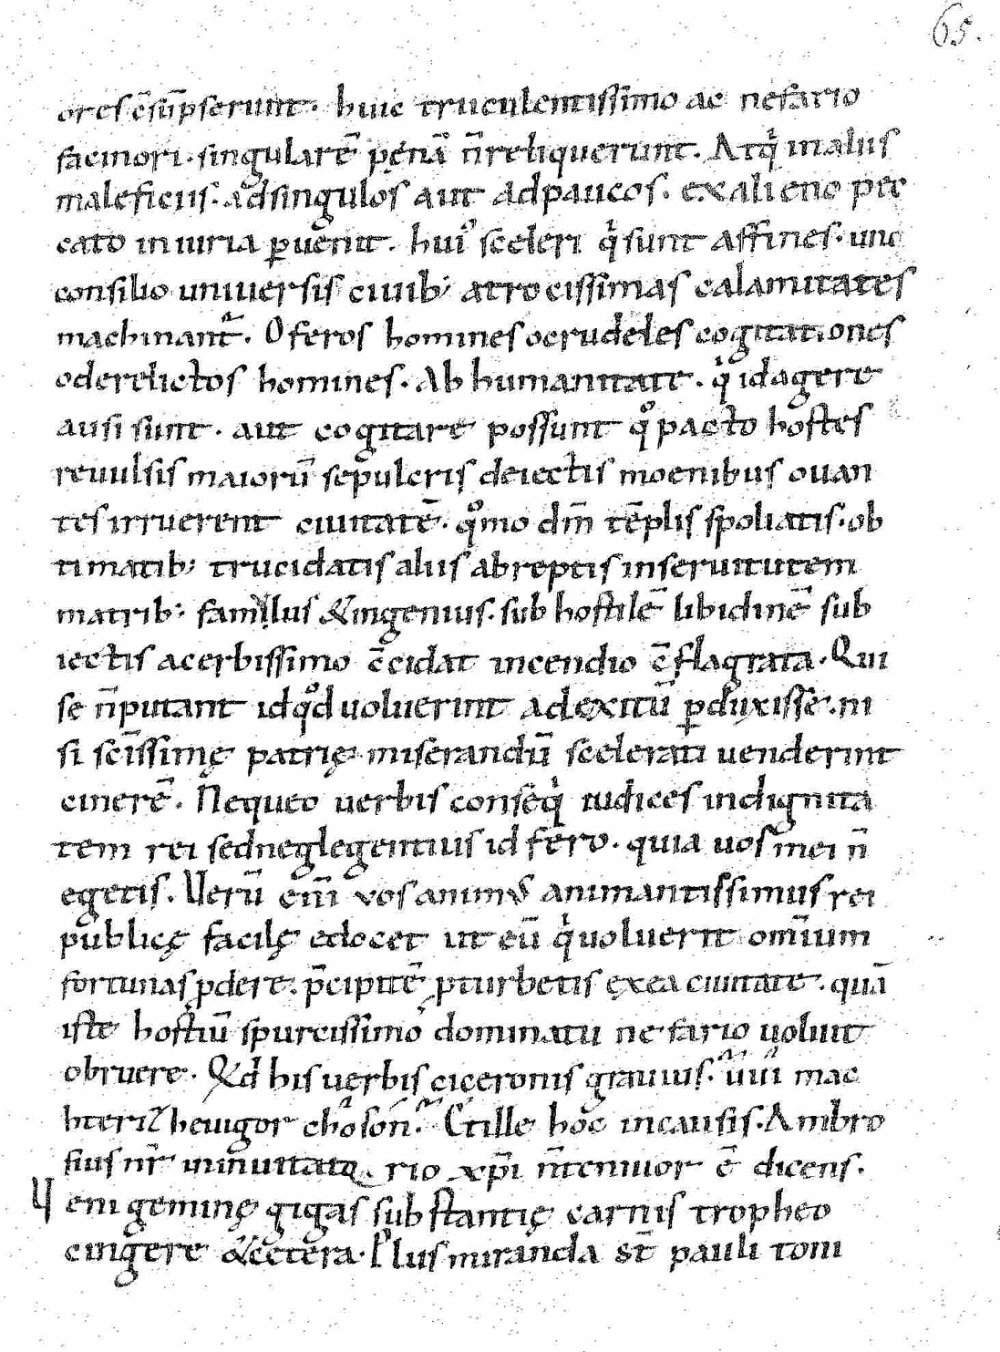 65.
ores c̄sūpserunt. huic truculentissimo ac nefario
facinori. singularē pęnā n̄reliquerunt. Atq̇ in aliis
maleficiis. adsingulos aut adpaucos. ex alieno pec
cato iniuria ꝑuenit. hui᾽ sceleri q̇ sunt affines. uno
consilio uniuersis ciuib; atrocissimas calamitates
machinant᷑. O feros homines ocrudeles cogitationes
oderelictos homines. Ab humanitate. q̇ idagere
ausi sunt. aut cogitare possunt qͦ pacto hostes
reuulsis maiorū sepulcris deiectis moenibus ouan
tes irruerent ciuitatē. qͦmo dm̄ tēplis spoliatis. ob
timatib; trucidatis aliis abreptis inseruitutem
matrib; familiis & ingenuis. sub hostilē libidinē sub
iectis acerbissimo c̄cidat incendio c̄flagrata. Qui
se n̄putant id qͦd uoluerint adexitū ꝑduxisse. ni
si sc̄issimę patrię miserandū scelerati uenderint
cinerē. Nequeo uerbis conseq̇ iudices indignita
tem rei sed neglegentius id fero. quia uos mei n̄
egetis. Uerū eni̅ vos animus amantissimus rei
publicę facilę edocet ut eū q̇ uoluerit omīum
fortunas ꝑdere. p̄cipitē ꝓturbetis exea ciuitate. quā
iste hostiū spurcissimo dominatu nefario uoluit
obruere. Qd his uerbis ciceronis grauius.
Et ille hoc incausis. Ambro
sius nr̄ rio xp̄i n̄tenuior ē dicens.
Ueni geminę gigas substantię carnis tropheo
cingere & cetera. Plus miranda st̄ pauli toni